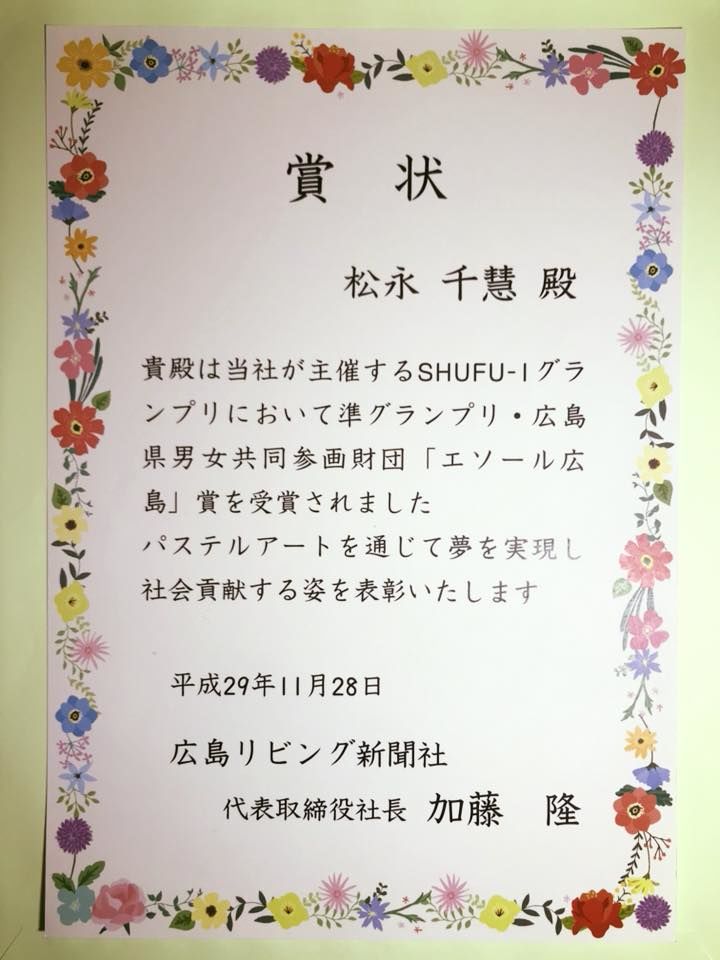 賞 状
松永 千慧 殿
貴殿は当社が主催するSHUFU-1グラ
ンプリにおいて準グランプリ・広島
県男女共同参画財団「エソール広
島」賞を受賞されました
パステルアートを通じて夢を実現し
社会貢献する姿を表彰いたします
平成29年11月28日
広島リビング新聞社
代表取締役社長 加藤 隆